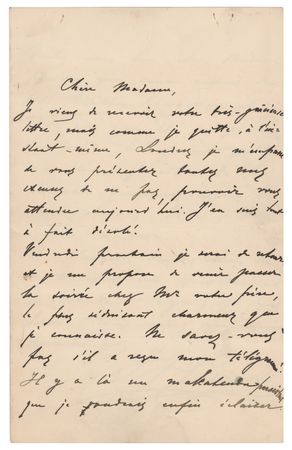 Chère Madame,
Je viens de recevoir votre très-gracieuse
lettre, mais comme je quitte, à l'in-
stant-même, Londres je m'empresse
de vous présenter toutes mes
excuses de ne pas pouvoir vous
attendre aujourd'hui. J'en suis tout
à fait désolé.
Vendredi prochain je serai de retour
et je me propose de venir passer
la soirée chez Mr votre frère,
le plus séduisant charmeur que
je connaisse. Ne savez-vous
pas s'il a reçu mon télégramme?
Il y a là un
que je voudrais enfin éclairer.